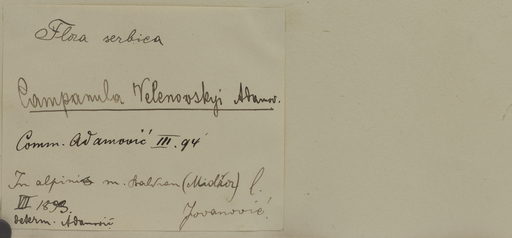 Flora serbica
Campanula Velenovskyi Adamov.
Comm. Adamović III. 94
In alpinis m. Balkan (Midžor) l.
VII 1893. Jovanović.
determ. Adamović